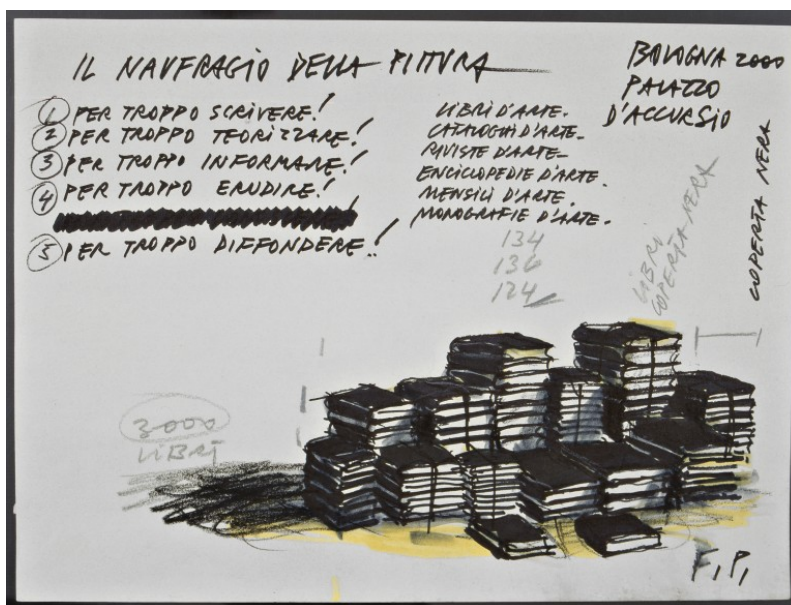 IL NAUFRAGIO DELLA PITTURA
1 PER TROPPO SCRIVERE!
2 PER TROPPO TEORIZZARE!
3 PER TROPPO INFORMARE!
4 PER TROPPO ERUDIRE!
5 PER TROPPO DIFFONDERE!
LIBRI D'ARTE.
CATALOGHI D'ARTE-
RIVISTE D'ARTE-
ENCICLOPEDIE D'ARTE.
MENSILI D'ARTE.
MONOGRAFIE D'ARTE.
134
136
124
BOLOGNA 2000
PALAZZO
D'ACCURSIO
LIBRI
COPERTA NERA
COPERTA NERA
3000
LIBRI
F.P.